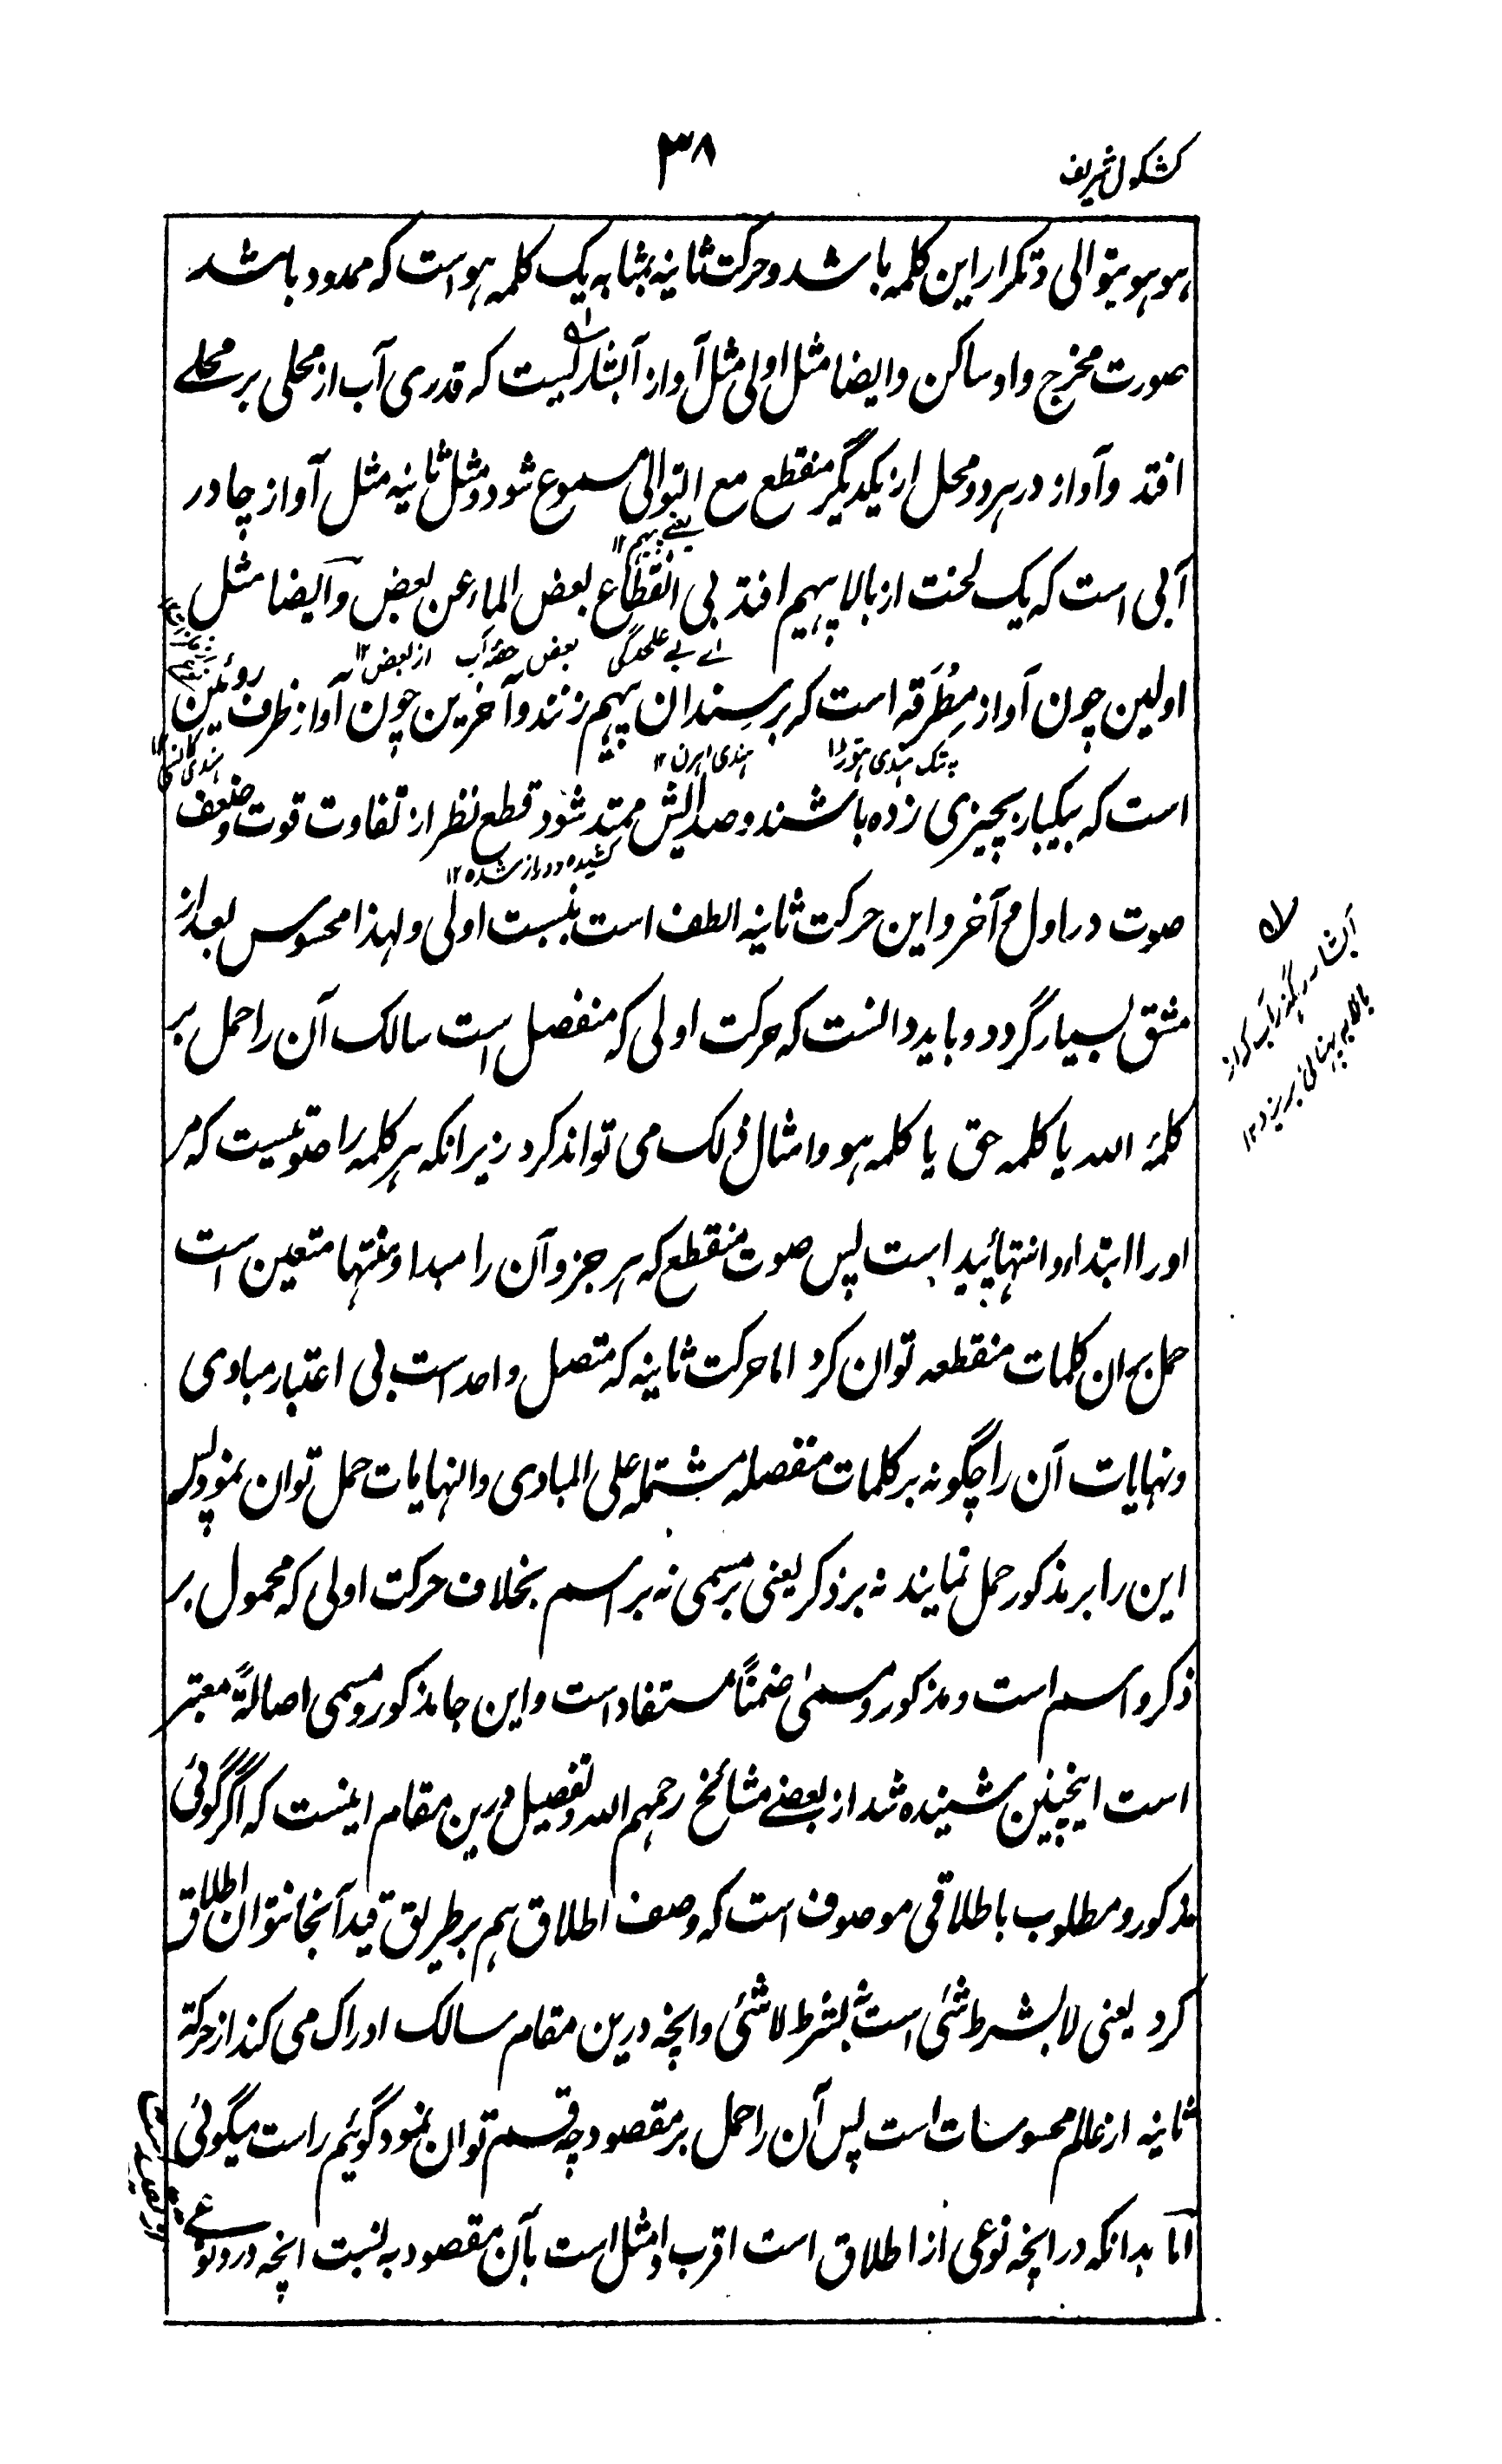 کشکول شریف
۳۸
ہو ہو بتوالی و تکرار این کلمہ باشد و حرکت ثانیہ بمثابہ یک کلمہ ہو است کہ ممدود باشد
صورت مخرج واو ساکن و ایضا مثل اولی مثل آواز آبشاریست کہ قدری آب از محلی بر محلے
افتد و آواز در ہر دو محل از یکدیگر منقطع مع التوالی مسموع شود و مثل ثانیہ مثل آواز چادر
یعنے پیہم ۱۲
آبی است کہ یک لخت از بالا پیہم افتد بی انقطاع بعض الماء عن بعض و ایضا مثل
اے بے علحدگی بعض حصّہ آب از بعض ۱۲
اولین چون آواز مِطْرَقہ است کہ بر سندان پیہم زنند و آخرین چون آواز ظرف روئین
ہندی ہتوڑا ہندی اہرن ۱۲
است کہ بیکبار بچیزی زدہ باشند و صدایش ممتد شود قطع نظر از تفاوت قوت و ضعف
کشیدہ و دراز شدہ ۱۲
صوت در اول و آخر و این حرکت ثانیہ الطف است بنسبت اولی و لہذا محسوس بعد از
مشق بسیار گردد و باید دانست کہ حرکت اولی کہ منفصل است سالک آن را حمل بر
کلمۂ اللہ یا کلمہ حق یا کلمہ ہو و امثال ذلک می تواند کرد زیرانکہ ہر کلمہ را صوتیست کہ مر
او را ابتداء و انتہا پیدا است پس صوت منقطع کہ ہر جزو آن را مبدا و منتہا متعین است
حمل بر ان کلمات منقطعہ توان کرد اما حرکت ثانیہ کہ متصل واحد است بی اعتبار مبادی
و نہایات آن را چگونہ بر کلمات منفصلہ مشتملہ علی المبادی و النہایات حمل توان نمود پس
این را بر مذکور حمل نمایند نہ بر ذکر یعنی بر مسمی نہ بر اسم بخلاف حرکت اولی کہ محمول بر
ذکر و اسم است و مذکور و مسمیٰ ضمنًا مستفاد است و این جا مذکور و مسمی اصالۃً معتبر
است اینچنین شنیدہ شد از بعضے مشائخ رحمہم اللہ و تفصیل درین مقام اینست کہ اگر گوئی
مذکور و مطلوب باطلاقی موصوف است کہ وصف اطلاق ہم بر طریق قید آنجا نتوان اطلاق
کرد یعنی لا بشرط شئی است نہ بشرط لا شئی و انچہ درین مقام سالک ادراک می کند از حرکۃ
ثانیہ از عالم محسوسات است پس آن را حمل بر مقصود چہ قسم توان نمود گوئیم راست میگوئی
اما بدانکہ در انچہ نوعی از اطلاق است اقرب و امثل است بآن مقصود بہ نسبت انچہ درو نوعے
آبشار